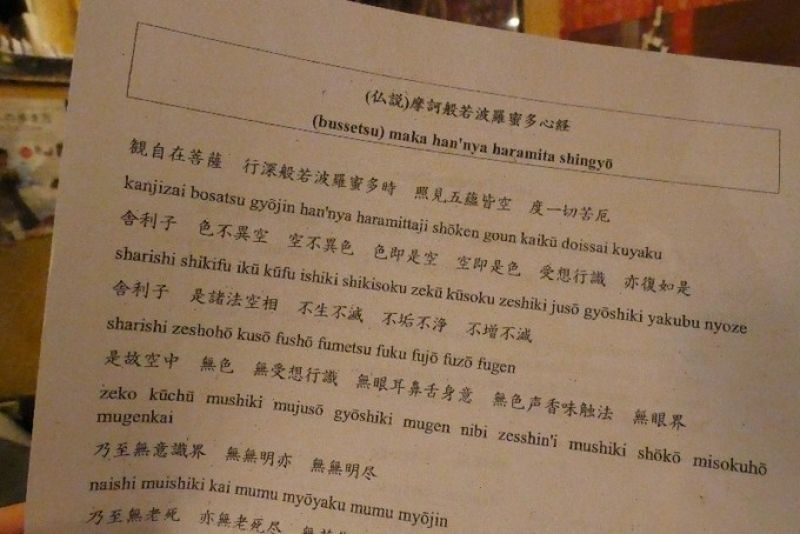 (仏説)摩訶般若波羅蜜多心経
(bussetsu) maka han'nya haramita shingyō
観自在菩薩 行深般若波羅蜜多時 照見五蘊皆空 度一切苦厄
kanjizai bosatsu gyōjin han'nya haramittaji shōken goun kaikū doissai kuyaku
舎利子 色不異空 空不異色 色即是空 空即是色 受想行識 亦復如是
sharishi shikifu ikū kūfu ishiki shikisoku zekū kūsoku zeshiki jusō gyōshiki yakubu nyoze
舎利子 是諸法空相 不生不滅 不垢不浄 不増不滅
sharishi zeshohō kusō fushō fumetsu fuku fujō fuzō fugen
是故空中 無色 無受想行識 無眼耳鼻舌身意 無色声香味触法 無眼界
zeko kūchū mushiki mujusō gyōshiki mugen nibi zesshin'i mushiki shōkō misokuhō
mugenkai
乃至無意識界 無無明亦 無無明尽
naishi muishiki kai mumu myōyaku mumu myōjin
乃至無老死 亦無老死尽